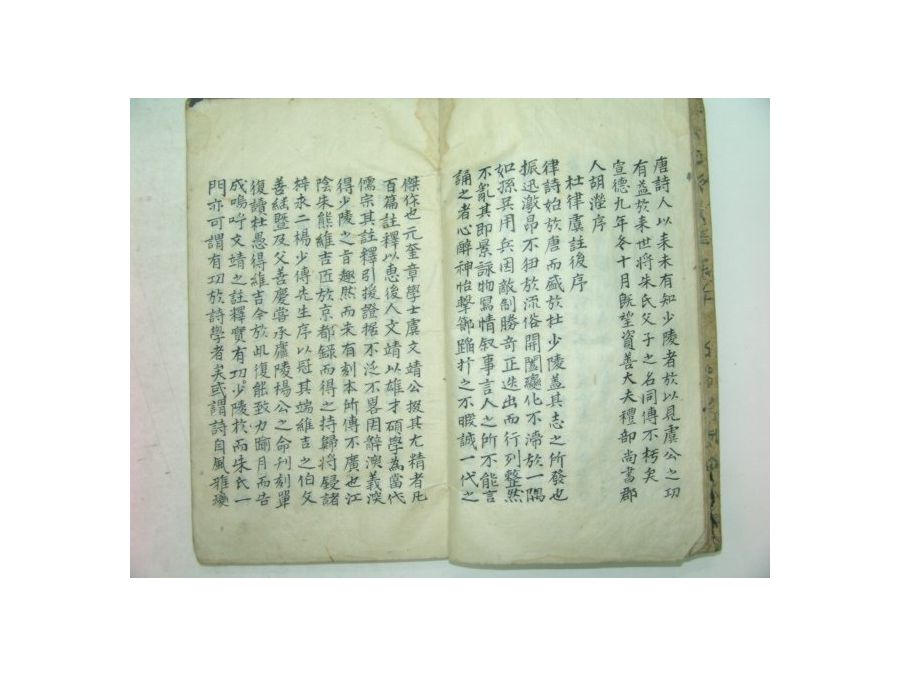 唐詩人以来未有知少陵者於以見虞公之功
有益於来世將朱氏父子之名同傳不朽矣
宣德九年冬十月既望資善大夫禮部尚書郡
人胡濙序
杜律虞註後序
律詩始於唐而盛於杜少陵盖其志之所發也
振迅激昻不狃於流俗開闔變化不滯於一隅
如孫吳用兵因敵制勝奇正迭出而行列整然
不亂其即景詠物寫情叙事言人之所不能言
誦之者心醉神怡擊節蹈抃之不暇誠一代之
傑作也元奎章學士虞文靖公掇其尤精者凡
百篇註釋以惠後人文靖以雄才碩學為當代
儒宗其註釋引援證据不泛不畧因辭演義深
得少陵之旨趣然而未有刻本所傳不廣也江
陰朱熊維吉匝於京都録而得之持歸將鋟諸
梓求二楊少傅先生序以冠其端維吉之伯父
善継暨及父善慶甞承廬陵楊公之命刊刻單
復讀杜愚得維吉今於此復能致力閱月而告
成嗚呼文靖之註釋實有功少陵於而朱氏一
門亦可謂有功於詩學者矣或謂詩自風雅瓊